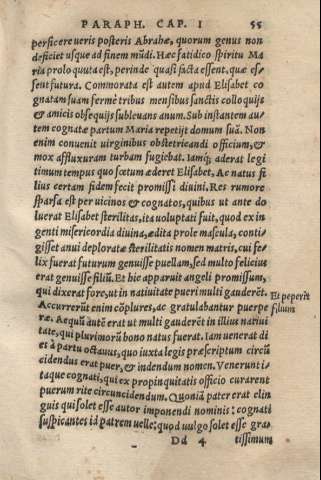 PARAPH. CAP. I 55
perficere veris posteris Abrahæ, quorum genus non
deficiet usque ad finem mūdi. Hæc fatidico spiritu Ma
ria prolo quuta est, perinde quasi facta essent, quæ es-
sent futura. Commorata est autem apud Elisabet co
gnatam suam fermè tribus mensibus sanctis colloquijs
& amicis obsequijs subleuans anum. Sub instantem au
tem cognatæ partum Maria repetijt domum suā. Non
enim convenit virginibus obstetricandi officium, &
mox affluxuram turbam fugiebat. Iamq; aderat legi
timum tempus quo fœtum æderet Elisabet, Ac natus fi
lius certam fidem fecit promissi diuini. Res rumore
sparsa est per uicinos & cognatos, quibus ut ante do
luerat Elisabet sterilitas, ita voluptati fuit, quod ex in
genti misericordia diuina, ædita prole mascula, conti
gisset anui deploratæ sterilitatis nomen matris, cui fe-
lix fuerat futurum genuisse puellam, sed multo felicius
erat genuisse filiū. Et hic apparuit angeli promissum,
qui dixerat fore, ut in natiuitate pueri multi gauderēt.
Et peperit
filium
Accurrerūt enim cōplures, ac gratulabantur puerpe
ræ. Æquū autē erat ut multi gauderēt in illius natiui
tate, qui plurimorū bono natus fuerat. Iam uenerat di
es à partu octauus, quo iuxta legis præscriptum circū
cidendus erat puer, & indendum nomen. Venerunt i-
taque cognati, qui ex propinquitatis officio curarent
puerum rite circuncidendum. Quoniā pater erat elin
guis qui solet esse autor imponendi nominis: cognati
suspicantes id patrem uelle: quod uulgo solet esse gra-
Dd 4 tissimum